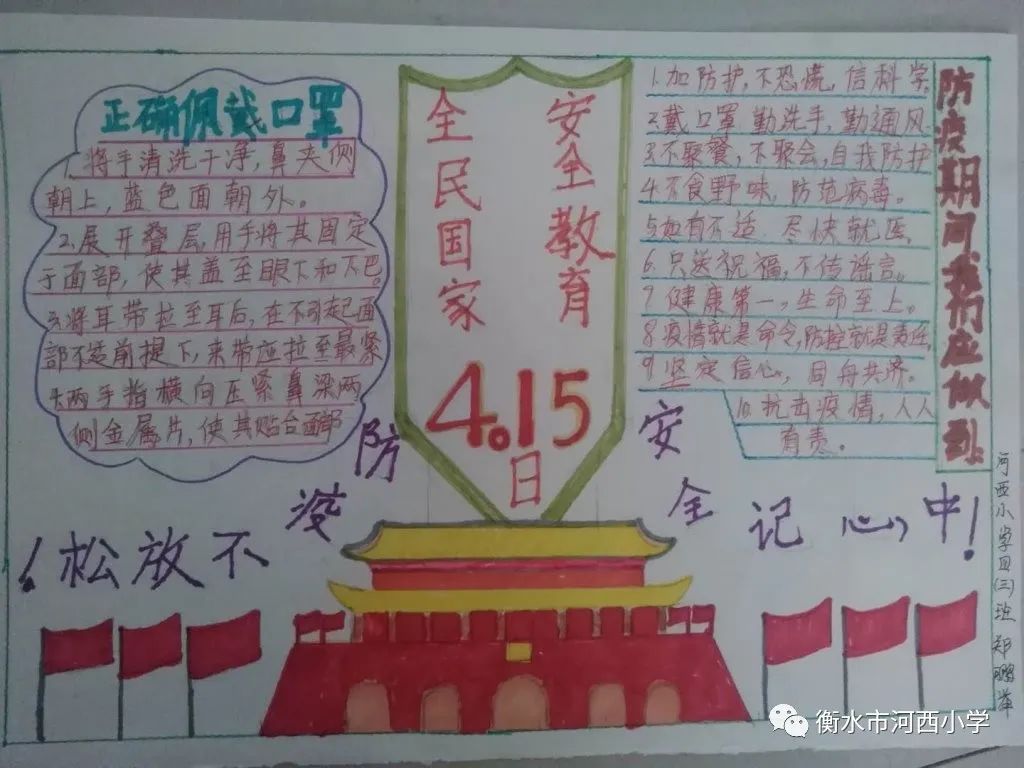 正确佩戴口罩
1.将手清洗干净,鼻夹侧
朝上,蓝色面朝外。
2.展开叠层,用手将其固定
于面部,使其盖至眼下和下巴。
3.将耳带拉至耳后,在不引起面
部不适前提下,来带应拉至最紧
4.两手指横向压紧鼻梁两
侧金属片,使其贴合面部
全民国家
安全教育
4.15
日
1.加防护,不恐慌,信科学,
2.戴口罩 勤洗手,勤通风
3.不聚餐,不聚会,自我防护
4.不食野味,防范病毒。
5.如有不适 尽快就医,
6.只送祝福,不传谣言。
7.健康第一,生命至上。
8.疫情就是命令,防控就是责任,
9.坚定信心,同舟共济。
10.抗击疫情,人人
有责。
防疫期间我们应做到:
防疫不放松!
安全记心中!
河西小学四(三)班 郑
衡水市河西小学